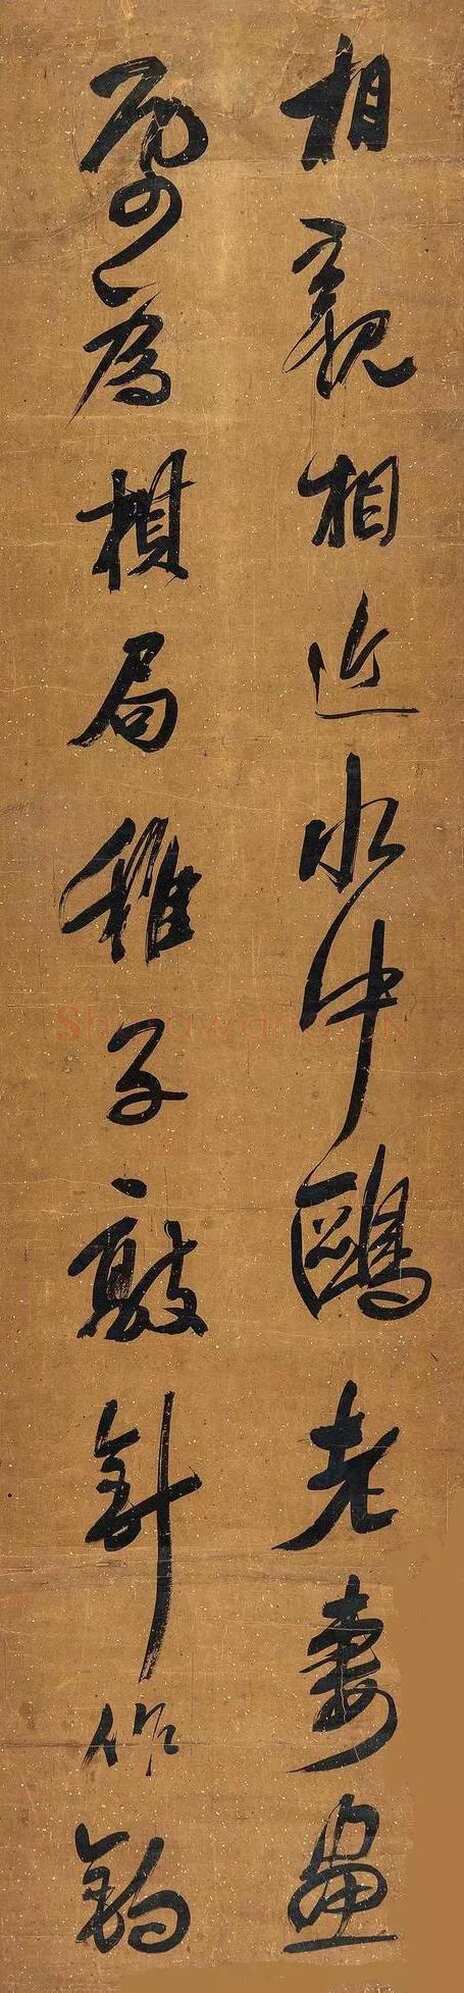 相親相近水中鷗老妻畫
帋為棋局稚子敲針作釣